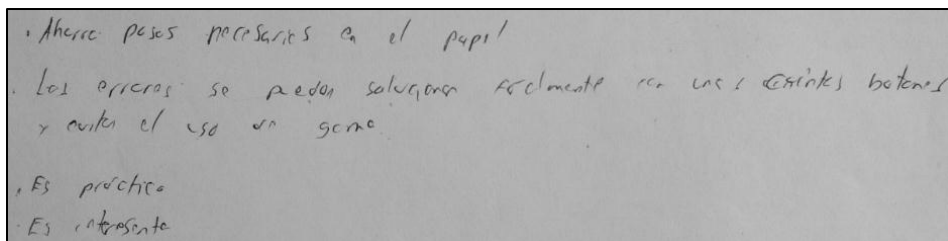 · Ahorra pasos necesarios en el papel
· Los errores se pueden solucionar facilmente con unos botones
y evita el uso de goma
· Es práctico
· Es interesante